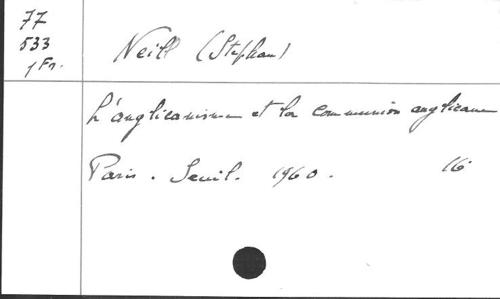 77
533
1 Fr.
Neill (Stephan)
L'anglicanisme et la communion anglicane
Paris. Seuil. 1960.
16